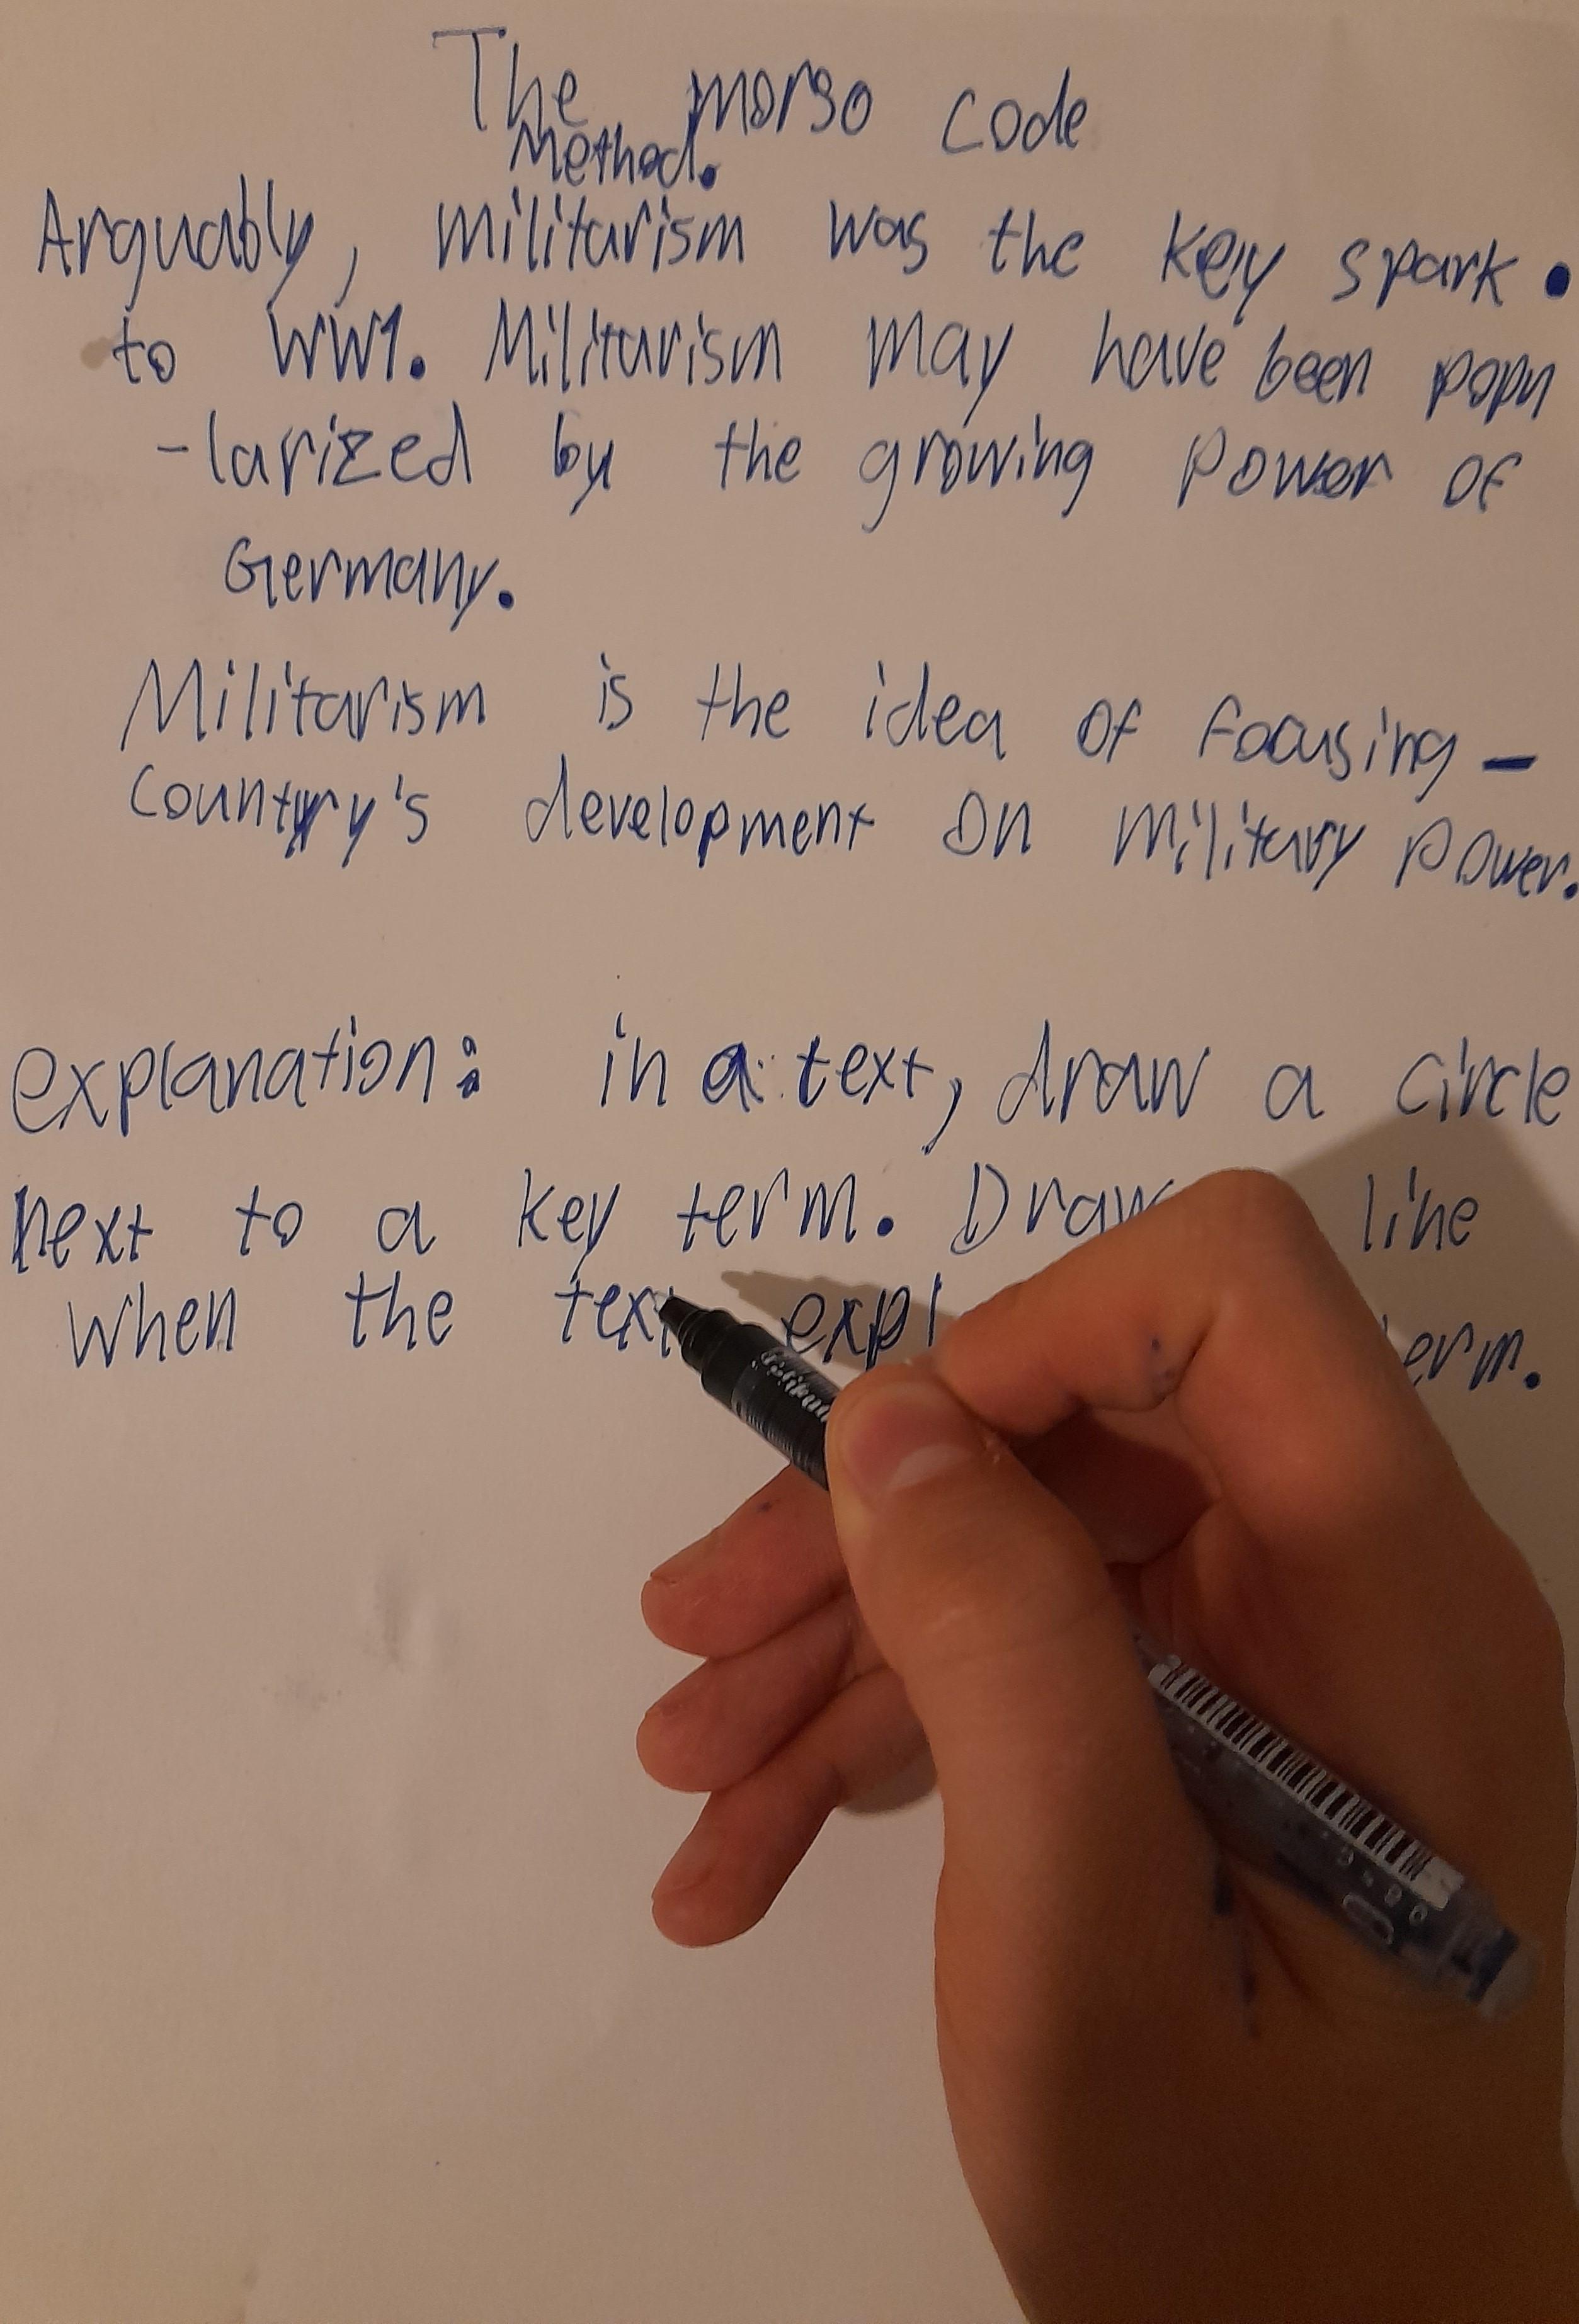 The morso code
Method.
Arguably, militarism was the key spark •
to WW1. Militarism may have been popu
-larized by the growing power of
Germany.
Militarism is the idea of focusing –
Country's development on military power.
explanation: in a text, draw a circle
next to a key term. Draw line
when the text